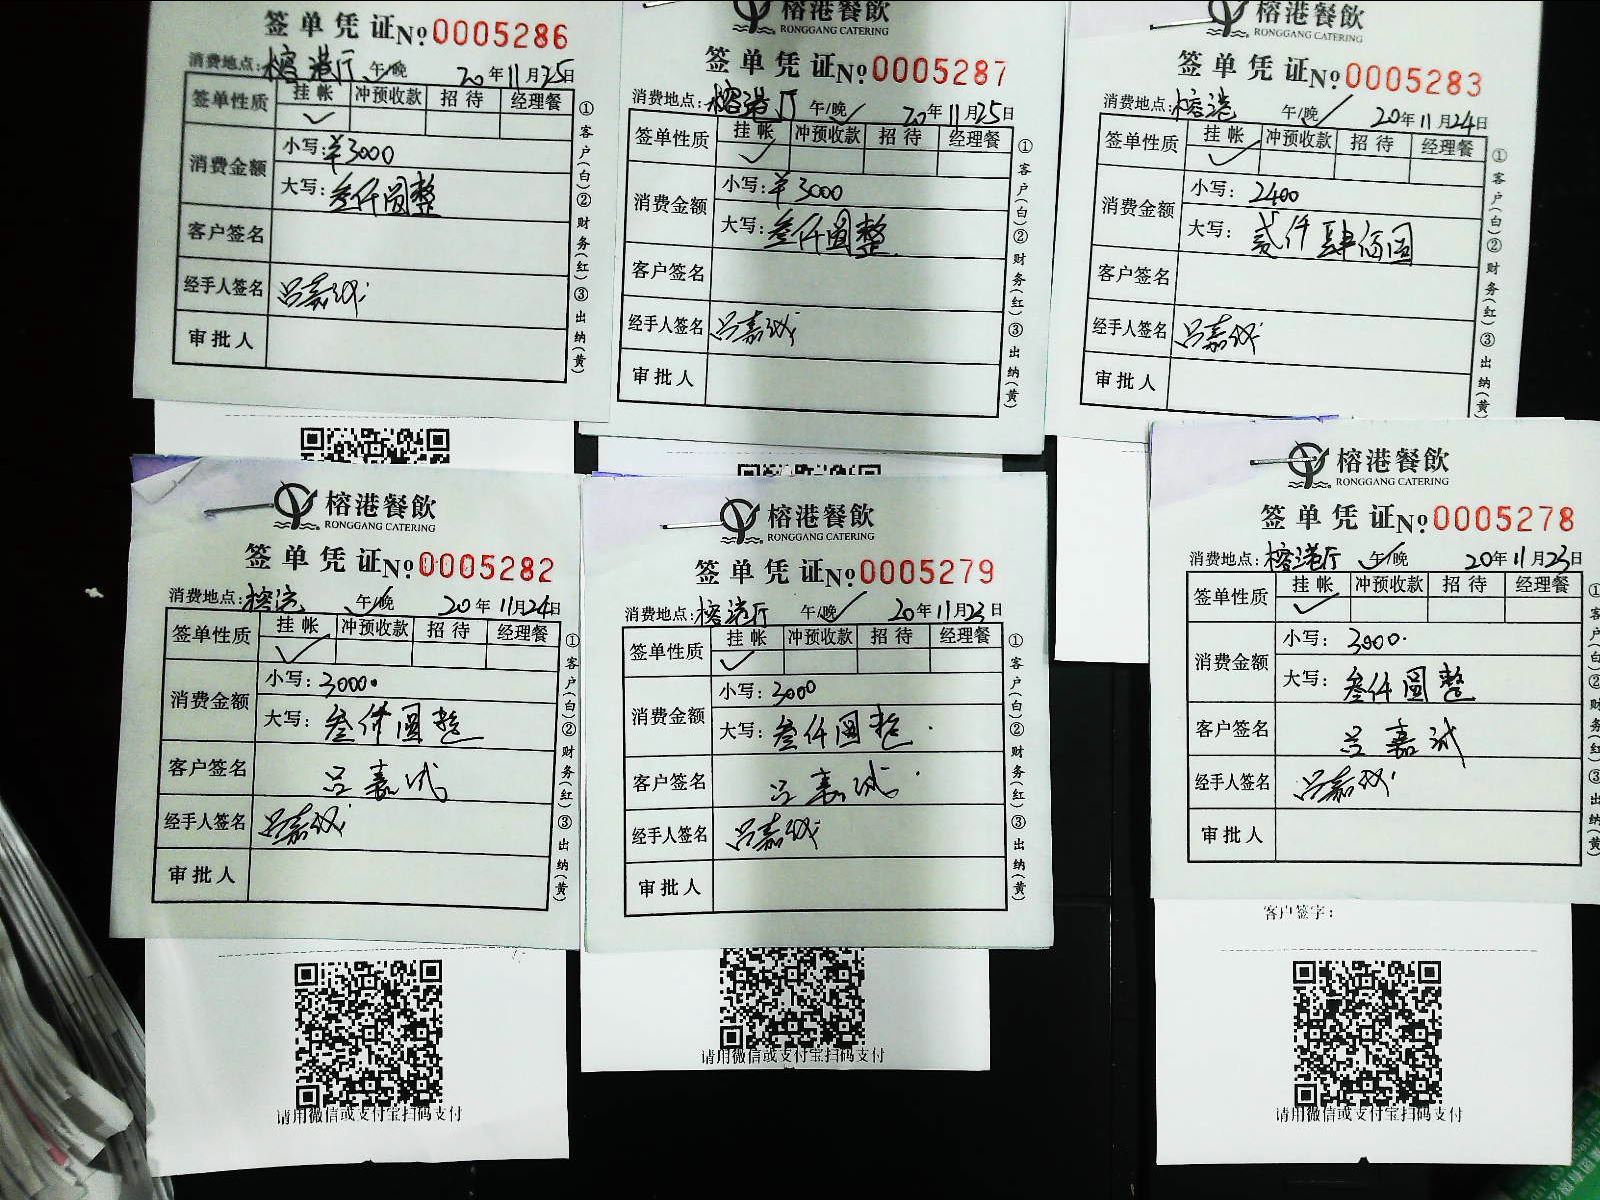 签单凭证 No 0005286
消费地点: 榕港厅 午/晚 20年11月25日
签单性质 挂帐 冲预收款 招待 经理餐
消费金额 小写: ¥3000
大写: 叁仟圆整
客户签名
经手人签名 吕嘉诚
审批人
①客户(白)②财务(红)③出纳(黄)
榕港餐飲
RONGGANG CATERING
签单凭证 No 0005287
消费地点: 榕港厅 午/晚 20年11月25日
签单性质 挂帐 冲预收款 招待 经理餐
消费金额 小写: ¥3000
大写: 叁仟圆整
客户签名
经手人签名 吕嘉诚
审批人
①客户(白)②财务(红)③出纳(黄)
榕港餐飲
RONGGANG CATERING
签单凭证 No 0005283
消费地点: 榕港 午/晚 20年11月24日
签单性质 挂帐 冲预收款 招待 经理餐
消费金额 小写: 2400
大写: 贰仟肆佰圆
客户签名
经手人签名 吕嘉诚
审批人
①客户(白)②财务(红)③出纳(黄)
榕港餐飲
RONGGANG CATERING
签单凭证 No 0005282
消费地点: 榕港 午/晚 20年11月24日
签单性质 挂帐 冲预收款 招待 经理餐
消费金额 小写: 3000
大写: 叁仟圆整
客户签名 吕嘉诚
经手人签名 吕嘉诚
审批人
①客户(白)②财务(红)③出纳(黄)
请用微信或支付宝扫码支付
榕港餐飲
RONGGANG CATERING
签单凭证 No 0005279
消费地点: 榕港厅 午/晚 20年11月23日
签单性质 挂帐 冲预收款 招待 经理餐
消费金额 小写: 3000
大写: 叁仟圆整
客户签名 吕嘉诚
经手人签名 吕嘉诚
审批人
①客户(白)②财务(红)③出纳(黄)
请用微信或支付宝扫码支付
榕港餐飲
RONGGANG CATERING
签单凭证 No 0005278
消费地点: 榕港厅 午/晚 20年11月23日
签单性质 挂帐 冲预收款 招待 经理餐
消费金额 小写: 3000
大写: 叁仟圆整
客户签名 吕嘉诚
经手人签名 吕嘉诚
审批人
①客户(白)②财务(红)③出纳(黄)
客户签字:
请用微信或支付宝扫码支付